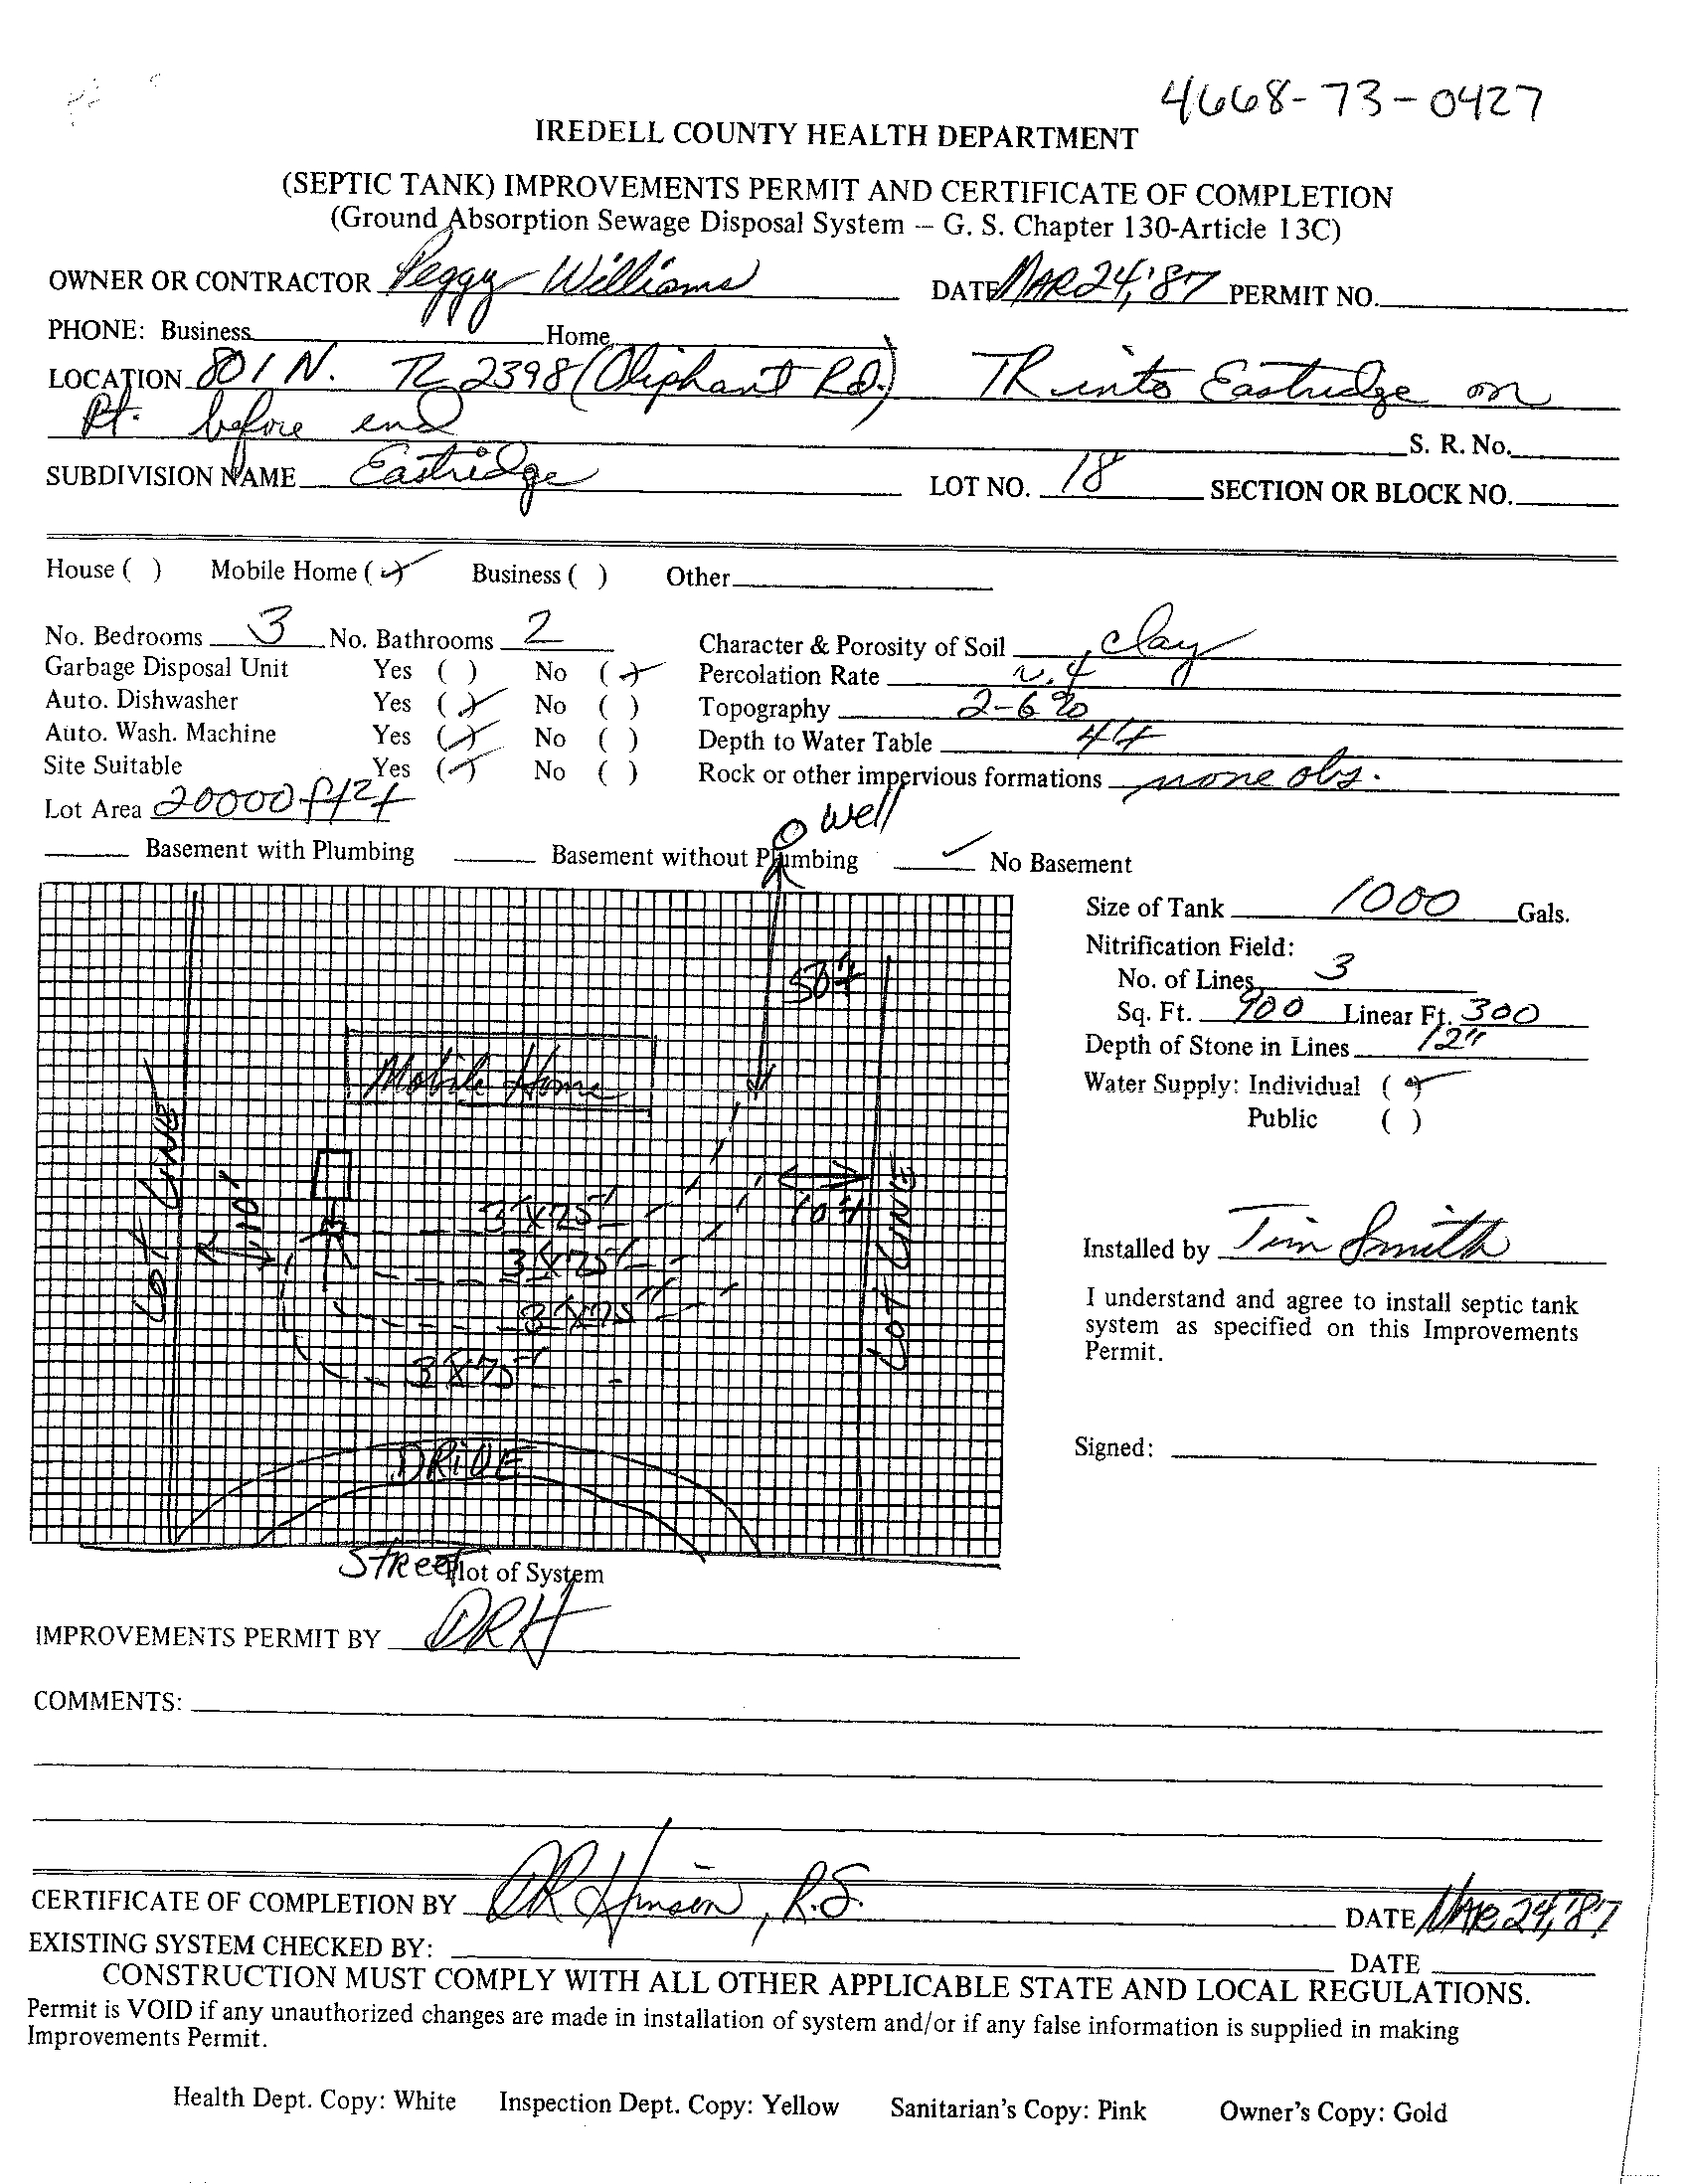 4668-73-0427
IREDELL COUNTY HEALTH DEPARTMENT
(SEPTIC TANK) IMPROVEMENTS PERMIT AND CERTIFICATE OF COMPLETION
(Ground Absorption Sewage Disposal System – G. S. Chapter 130-Article 13C)
OWNER OR CONTRACTOR Peggy Williams DATE MAR 24, '87 PERMIT NO.
PHONE: Business Home
LOCATION 801 N. TL 2398 (Oliphant Rd.) TR into Eastridge on
Rt. before end
S. R. No.
SUBDIVISION NAME Eastridge LOT NO. 18 SECTION OR BLOCK NO.
House ( ) Mobile Home (✓) Business ( ) Other
No. Bedrooms 3 No. Bathrooms 2 Character & Porosity of Soil clay
Garbage Disposal Unit Yes ( ) No (✓) Percolation Rate .4
Auto. Dishwasher Yes (✓) No ( ) Topography 2-6%
Auto. Wash. Machine Yes (✓) No ( ) Depth to Water Table 4'+
Site Suitable Yes (✓) No ( ) Rock or other impervious formations none obs.
Lot Area 20000 ft2+
well
Basement with Plumbing Basement without Plumbing ✓ No Basement
Size of Tank 1000 Gals.
Nitrification Field:
No. of Lines 3
Sq. Ft. 900 Linear Ft. 300
Depth of Stone in Lines 12"
Water Supply: Individual (✓)
Public ( )
50'+
Mobile Home
LOT LINE
10'
3 X 75'
3 X 75'
3 X 75'
3 X 75'
10'+
LOT LINE
DRIVE
Installed by Tim Smith
I understand and agree to install septic tank
system as specified on this Improvements
Permit.
Signed:
STReet
Plot of System
IMPROVEMENTS PERMIT BY DRH
COMMENTS:
CERTIFICATE OF COMPLETION BY DR Hinson, R.S. DATE MAR 24, '87
EXISTING SYSTEM CHECKED BY: DATE
CONSTRUCTION MUST COMPLY WITH ALL OTHER APPLICABLE STATE AND LOCAL REGULATIONS.
Permit is VOID if any unauthorized changes are made in installation of system and/or if any false information is supplied in making
Improvements Permit.
Health Dept. Copy: White Inspection Dept. Copy: Yellow Sanitarian's Copy: Pink Owner's Copy: Gold